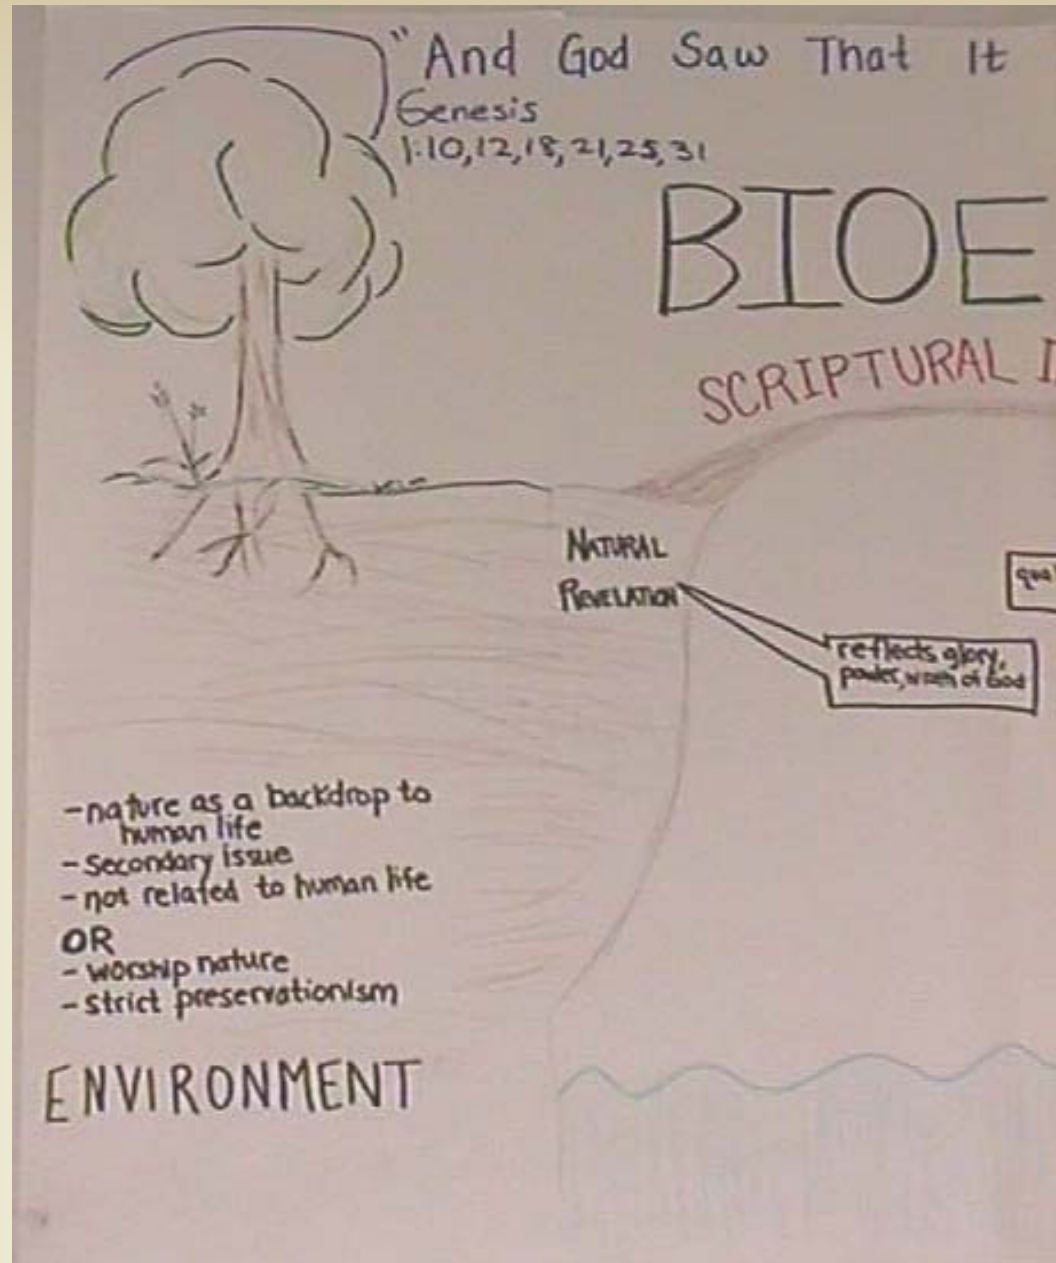 "And God Saw That It
Genesis
1:10,12,18,21,25,31
BIOE
SCRIPTURAL I
NATURAL
REVELATION
qual
reflects glory,
power, worth of God
-nature as a backdrop to
human life
-secondary issue
-not related to human life
OR
-worship nature
-strict preservationism
ENVIRONMENT